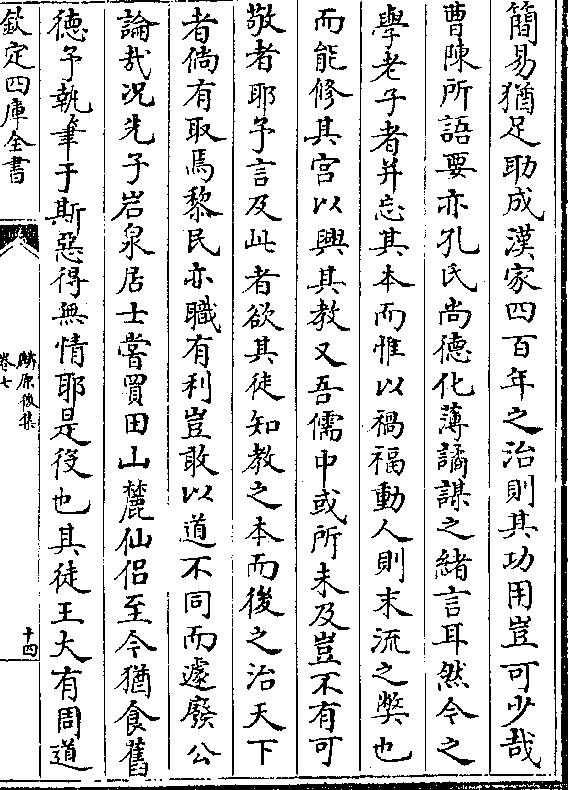 簡易猶足助成漢家四百年之治則其功用豈可少哉
曹陳所語要亦孔氏尚德化薄譎謀之緒言耳然今之
學老子者并忘其本而惟以禍福動人則末流之獘也
而能修其宫以興其教又吾儒中或所未及豈不有可
敬者耶予言及此者欲其徒知教之本而後之治天下
者倘有取焉黎民亦職有利豈敢以道不同而遽廢公
論哉况先子岩泉居士嘗買田山麓仙侣至今猶食舊
德予執筆于斯惡得無情耶是役也其徒王大有周道
欽定四庫全書
麟原後集
卷七
十四